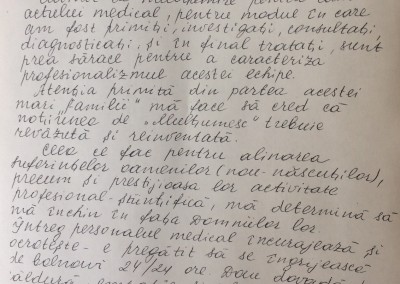 actului medical, pentru modul în care
am fost primiți, investigați, consultați
diagnosticați, și în final tratați, sunt
prea sărace pentru a caracteriza
profesionalizmul acestei echipe.
Atenția primită din partea acestei
mari „familii" mă face să cred că
noțiunea de „Mulțumesc" trebuie
revăzută și reinventată.
Ceea ce fac pentru alinarea
suferințelor oamenilor (nou-născuților),
precum și prestijioasa lor activitate
profesional-științifică, mă determină să
mă închin în fața Domniilor lor.
Întreg personalul medical încurajează și
ocrotește - e pregătit să se îngrijească
de bolnavi 24/24 ore. Dau dovadă